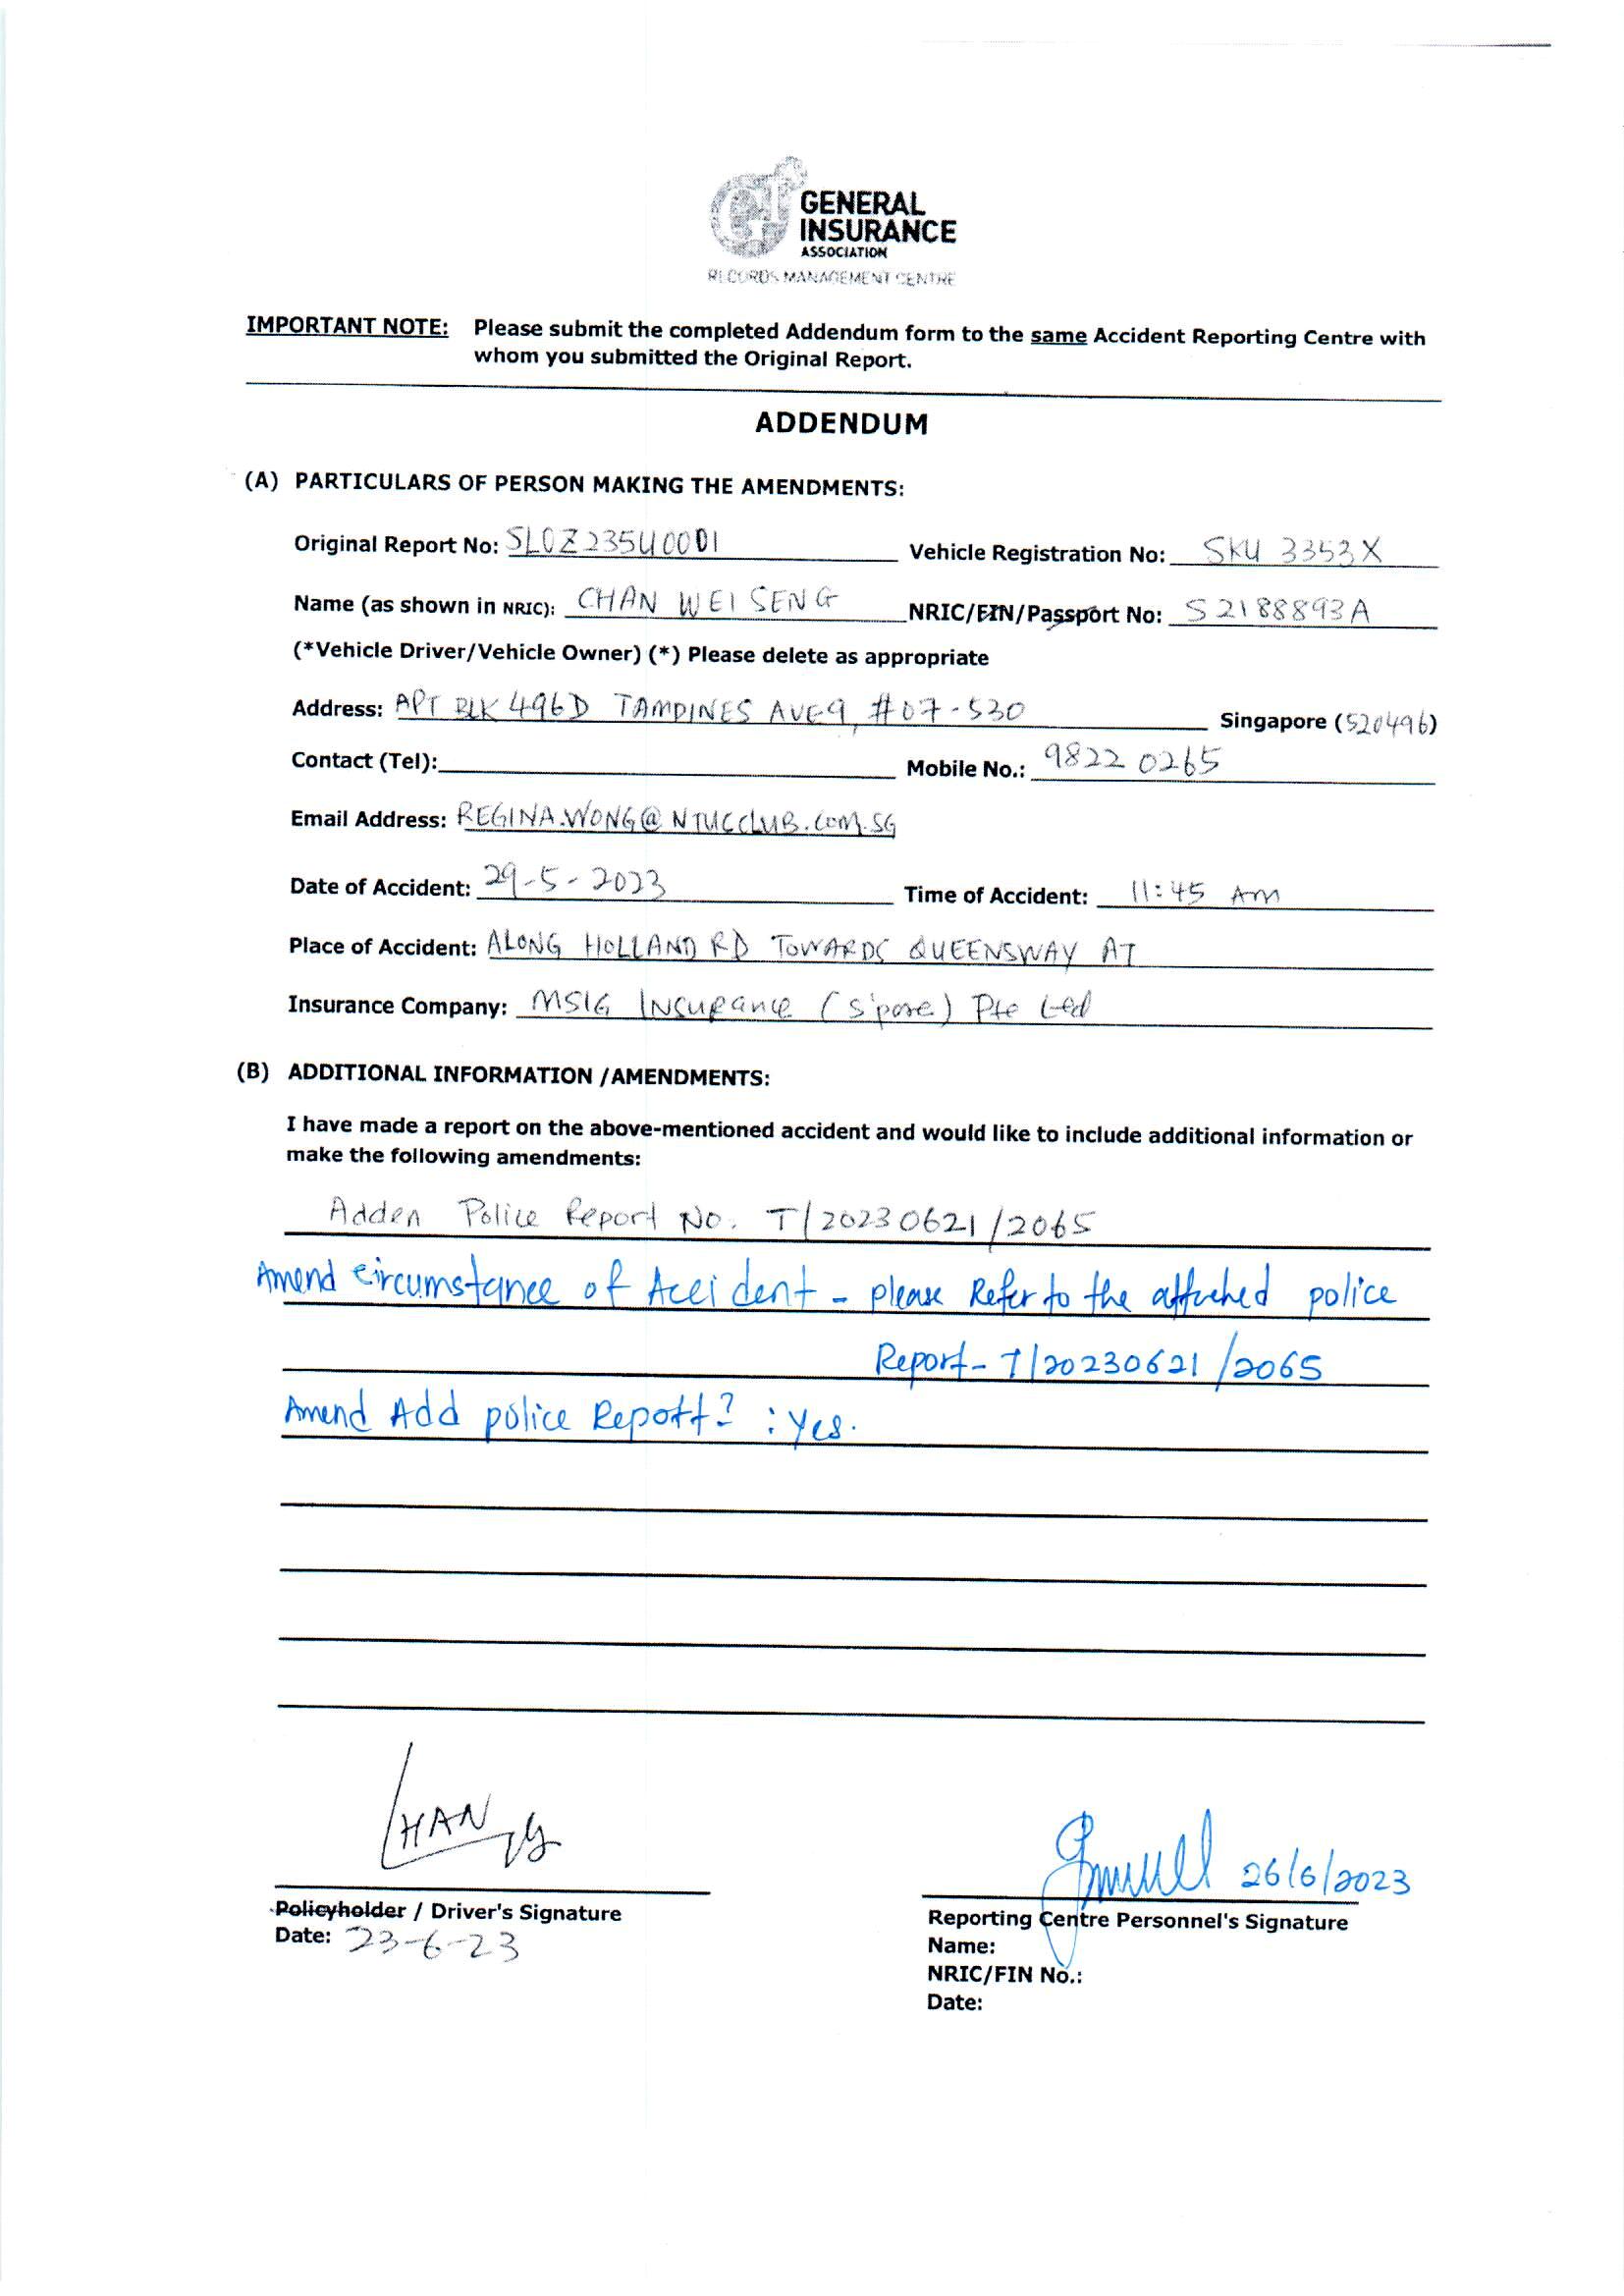 GENERAL
INSURANCE
ASSOCIATION
RECORDS MANAGEMENT CENTRE
IMPORTANT NOTE: Please submit the completed Addendum form to the same Accident Reporting Centre with
whom you submitted the Original Report.
ADDENDUM
(A) PARTICULARS OF PERSON MAKING THE AMENDMENTS:
Original Report No: SL0Z235U0001 Vehicle Registration No: SKU 3353X
Name (as shown in NRIC): CHAN WEI SENG NRIC/FIN/Passport No: S2188893A
(*Vehicle Driver/Vehicle Owner) (*) Please delete as appropriate
Address: APT BLK 496D TAMPINES AVE 9, #07-530 Singapore (520496)
Contact (Tel): Mobile No.: 9822 0265
Email Address: REGINA.WONG@NTUCCLUB.COM.SG
Date of Accident: 29-5-2023 Time of Accident: 11:45 AM
Place of Accident: ALONG HOLLAND RD TOWARDS QUEENSWAY AT
Insurance Company: MSIG Insurance (S'pore) Pte Ltd
(B) ADDITIONAL INFORMATION /AMENDMENTS:
I have made a report on the above-mentioned accident and would like to include additional information or
make the following amendments:
Adden Police Report No. T/20230621/2065
Amend Circumstance of Accident - please Refer to the attached police
Report- T/20230621/2065
Amend Add police Report? : Yes.
CHAN
26/6/2023
Policyholder / Driver's Signature
Date: 23-6-23
Reporting Centre Personnel's Signature
Name:
NRIC/FIN No.:
Date: